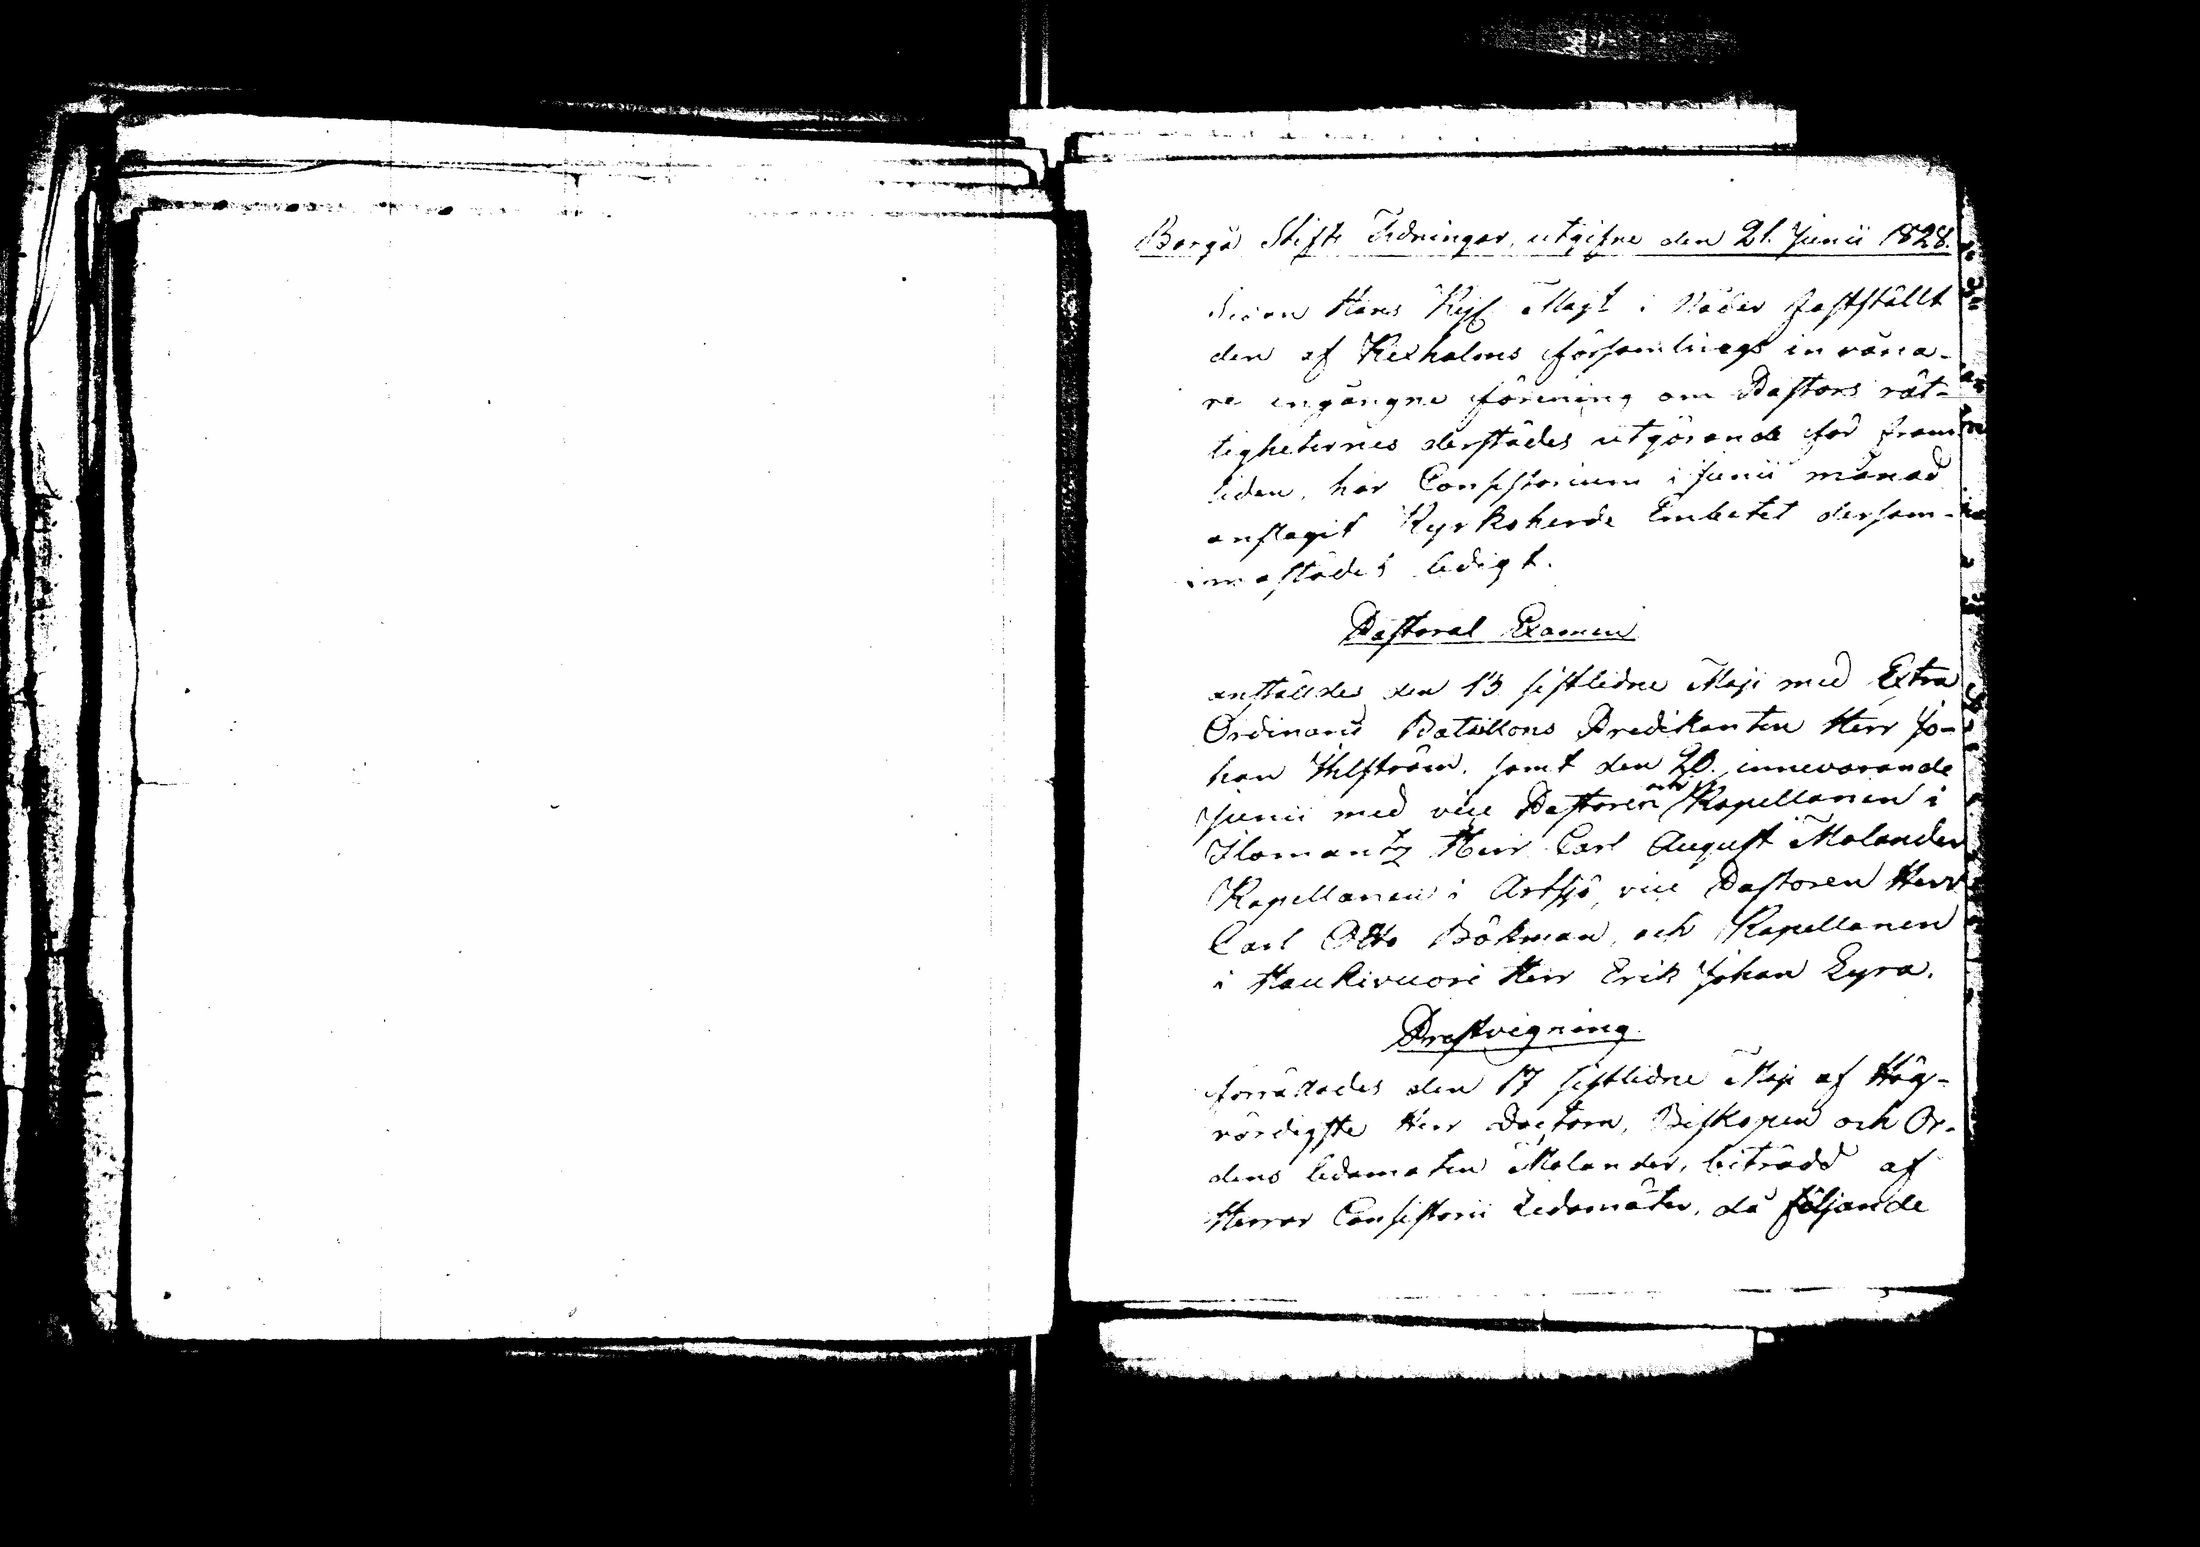 Borgå Stifts Tidningar, utgifne den 21. Junii 1828.
Sedan Hans Kejs. Majt i Nåder faststält
den af Kexholms församlings invåna-
re ingångne förening om Pastors rät-
tigheternes derstädes utgörande för fram
tiden, har Consistorium i Junii månad
anslagit Kyrkoherde Embetet dersam-
mastädes ledigt.
Pastoral Examen
anställdes den 13 sistledne Maji med Extra
Ordinarie Bataillons Predikanten Herr Jo-
han Ahlström, samt den 20. innevarande
Junii med vice Pastoren och Kapellanen i
Ilomantz Herr Carl August Molander
Kapellanen i Artsjö, vice Pastoren Herr
Carl Otto Bökman, och Kapellanen
i Haukivuori Herr Erik Johan Lyra.
Prestvigning
förrättades den 17 sistledne Maji af Hög-
vördigste Herr Doctorn, Biskopen och Or-
dens ledamoten Molander, biträdd af
Herrar Consistorii Ledamöter, då följande